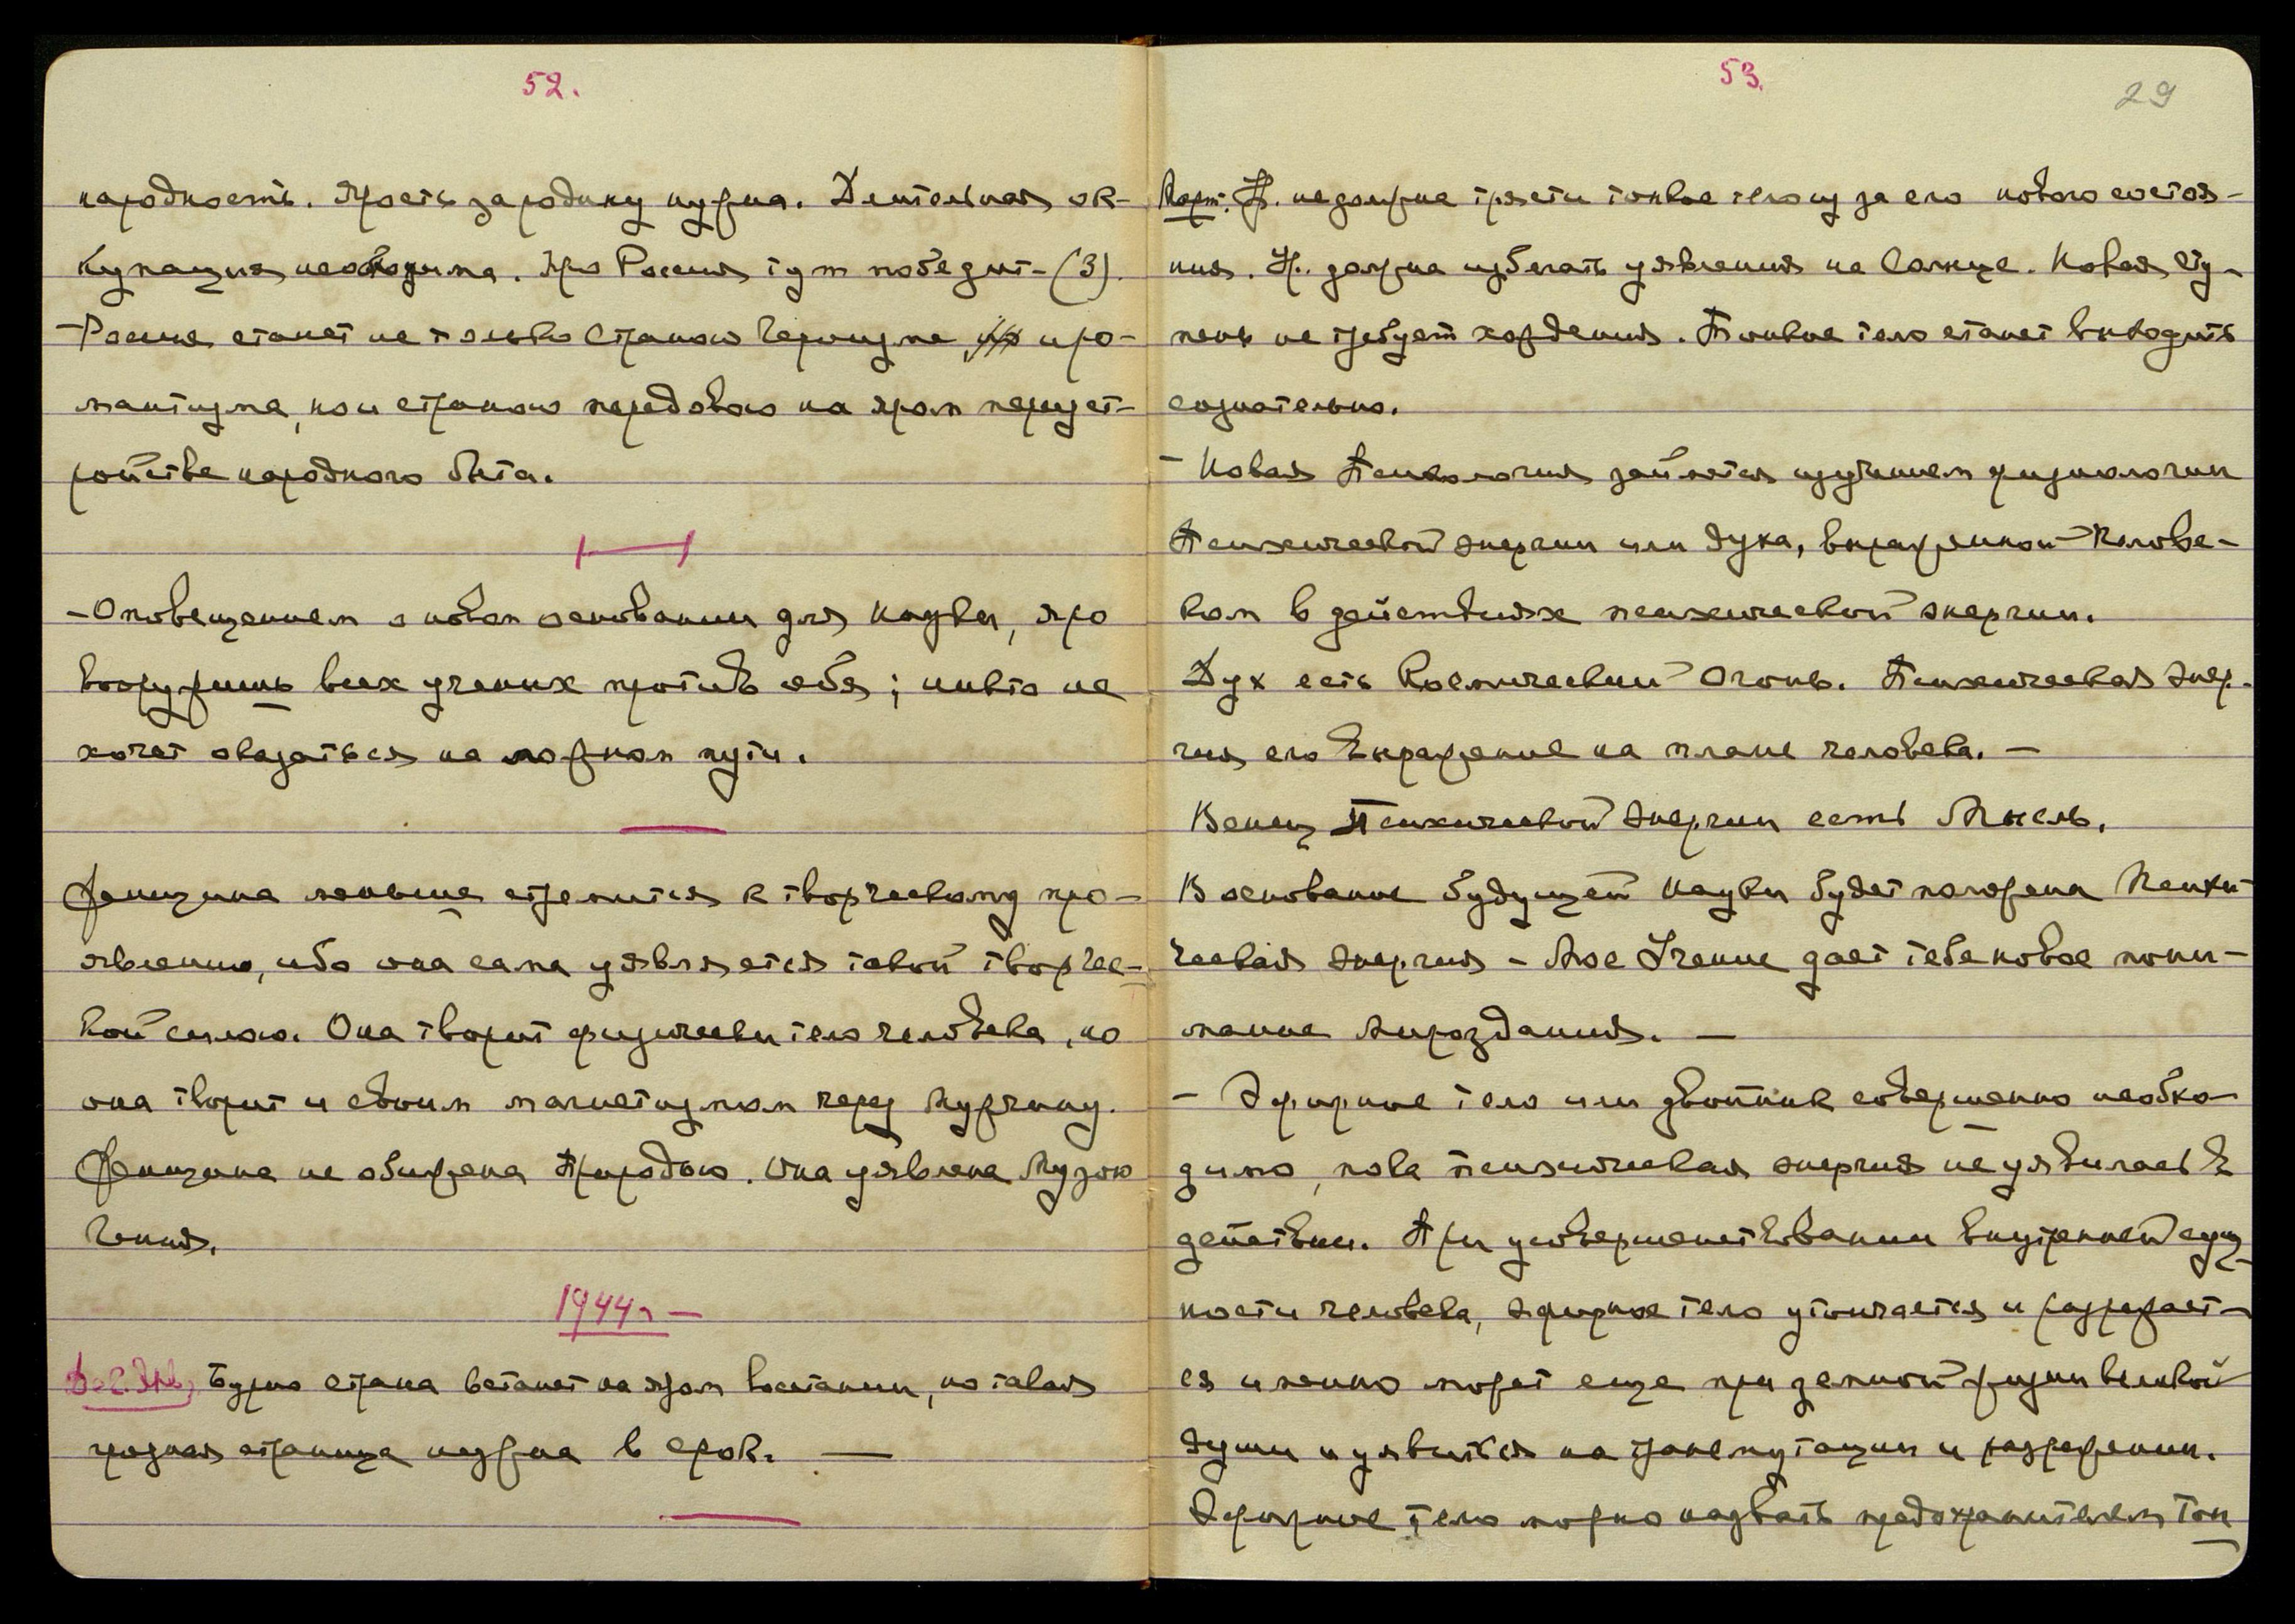 52.
народность. Ярость за родину нужна. Длительная ок-
купация необходима. Яро Россия тут победит - (3).
- Россия станет не только страною героизма, и ро-
мантизма, но и страною передовою на яром переуст-
ройстве народного быта.
- Оповещением о новом основании для Науки, яро
вооружишь всех ученых против себя; никто не
хочет оказаться на ложном пути.
Женщина меньше стремится к творческому про-
явлению, ибо она сама уявляется такой творчес-
кой силою. Она творит физически тело человека, но
она творит и своим магнетизмом через Мужчину.
Женщина не обижена Природою. Она уявлена Музою
Гения.
1944 г. —
Бурно страна встанет на яром восстании, но такая
грозная страница нужна в срок. —
53.
29
не должна трясти тонкое тело из за его нового состоя-
ния. Н. должна избегать уявления на Солнце. Новая сту-
пень не требует хождения. Тонкое тело станет выходить
сознательно.
- Новая Психология займется изучением физиологии
Психической энергии или духа, выраженной Челове-
ком в действиях психической энергии.
Дух есть Космический Огонь. Психическая энер-
гия его выражение на плане человека. —
Венец Психической Энергии есть Мысль.
В основание будущей Науки будет положена Психи-
ческая энергия - Мое Учение дает тебе новое пони-
мание Мироздания. —
- Эфирное тело или двойник совершенно необхо-
димо, пока психическая энергия не уявилась в
действии. При усовершенствовании внутренней сущ-
ности человека, эфирное тело утончается и разрежает-
ся именно может еще при земной жизни великой
души и уявиться на трансмутации и разрежении.
Эфирное тело можно назвать предохранителем Тон